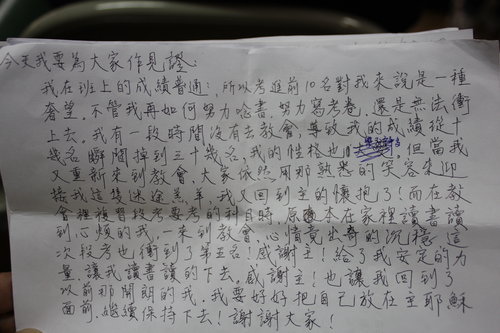 今天我要為大家作見證:
我在班上的成績普通,所以考進前10名對我來說是一種
奢望,不管我再如何努力唸書,努力寫考卷,還是無法衝
上去。我有一段時間沒有去教會,導致我的成績從十
幾名瞬間掉到三十幾名,我的性格也,但當我
又重新來到教會,大家依然用那熟悉的笑容來迎
接我這隻迷途羔羊,我又回到主的懷抱了!而在教
會裡複習段考要考的科目時,原本在家裡讀書讀
到心煩的我,一來到教會,心情竟出奇的沉穩,這
次段考也衝到了第五名!感謝主!給了我安定的力
量,讓我讀書讀的下去。感謝主!也讓我回到了
以前那開朗的我,我要好好把自己放在主耶穌
面前,繼續保持下去!謝謝大家!